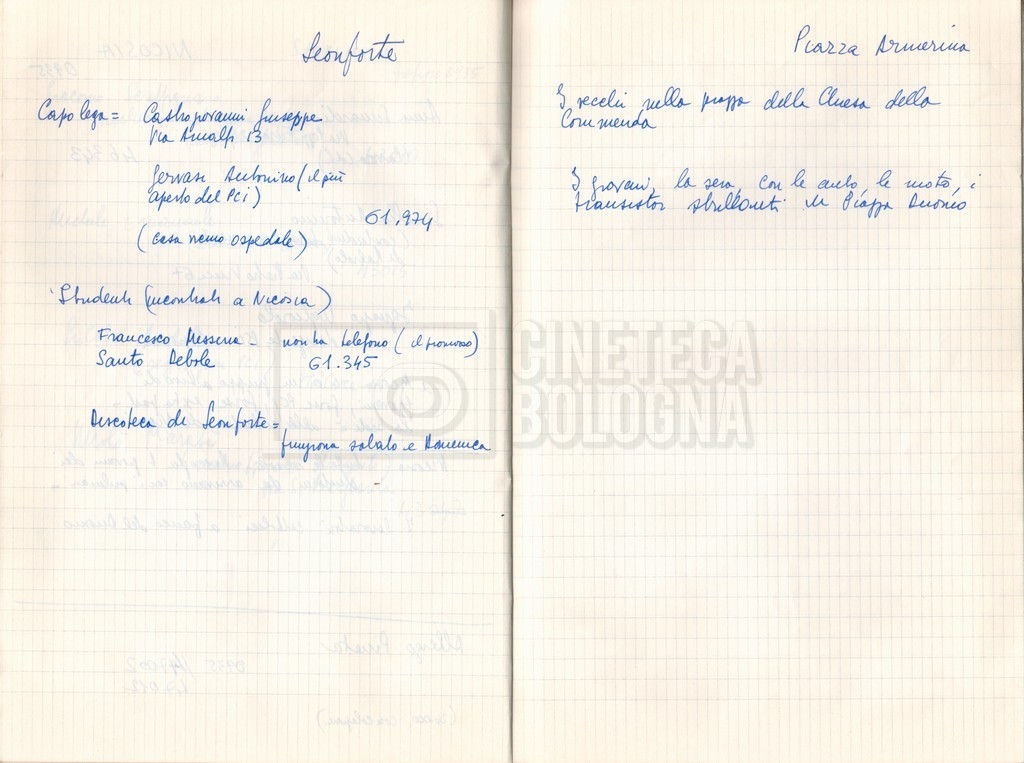 Leonforte
Capo lega = Castrogiovanni Giuseppe
Via Amalfi 13
Gervasi Antonino (il più
aperto del PCI)
61.974
(casa vicino ospedale)
Studenti (incontrati a Nicosia)
Francesco Messina - non ha telefono (il )
Santo Debole 61.345
Discoteca di Leonforte =
funziona sabato e Domenica
Piazza Armerina
I vecchi nella piazza della Chiesa della
Commenda
I giovani, la sera, con le auto, le moto, i
transistor strillanti in Piazza Duomo
CINETECA
BOLOGNA